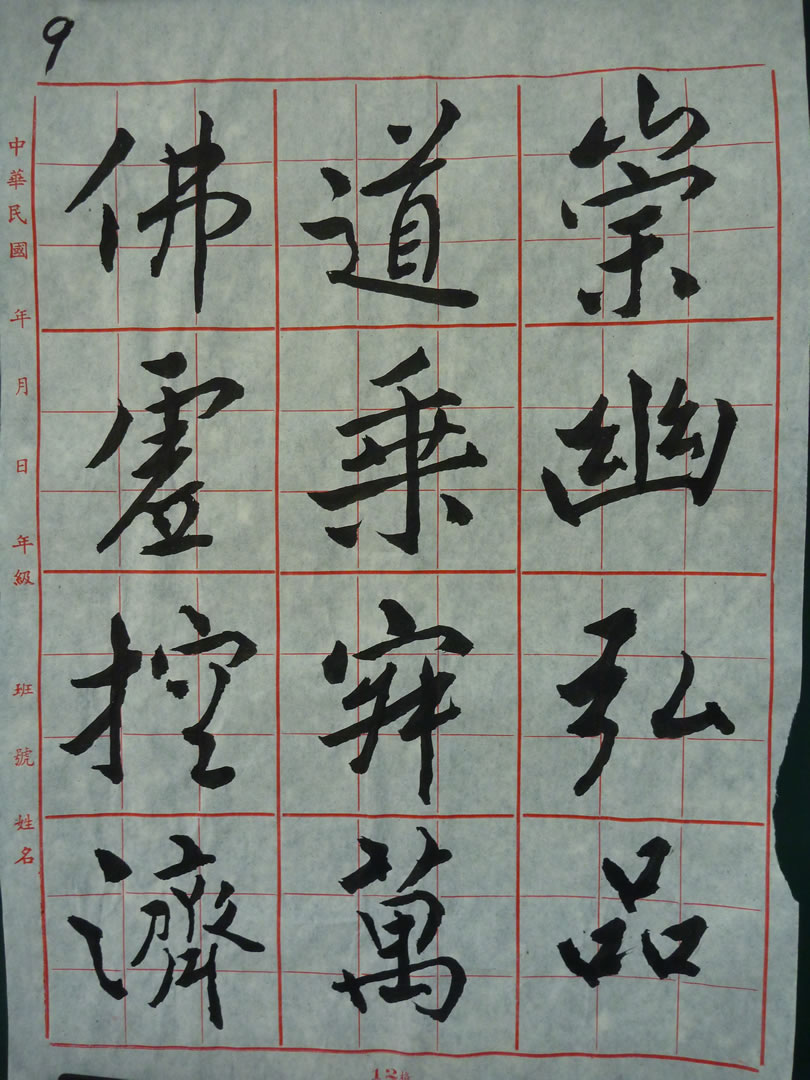 9
佛道崇
虛乘幽
控寂弘
濟萬品
中華民國 年 月 日 年級 班 號 姓名
12格